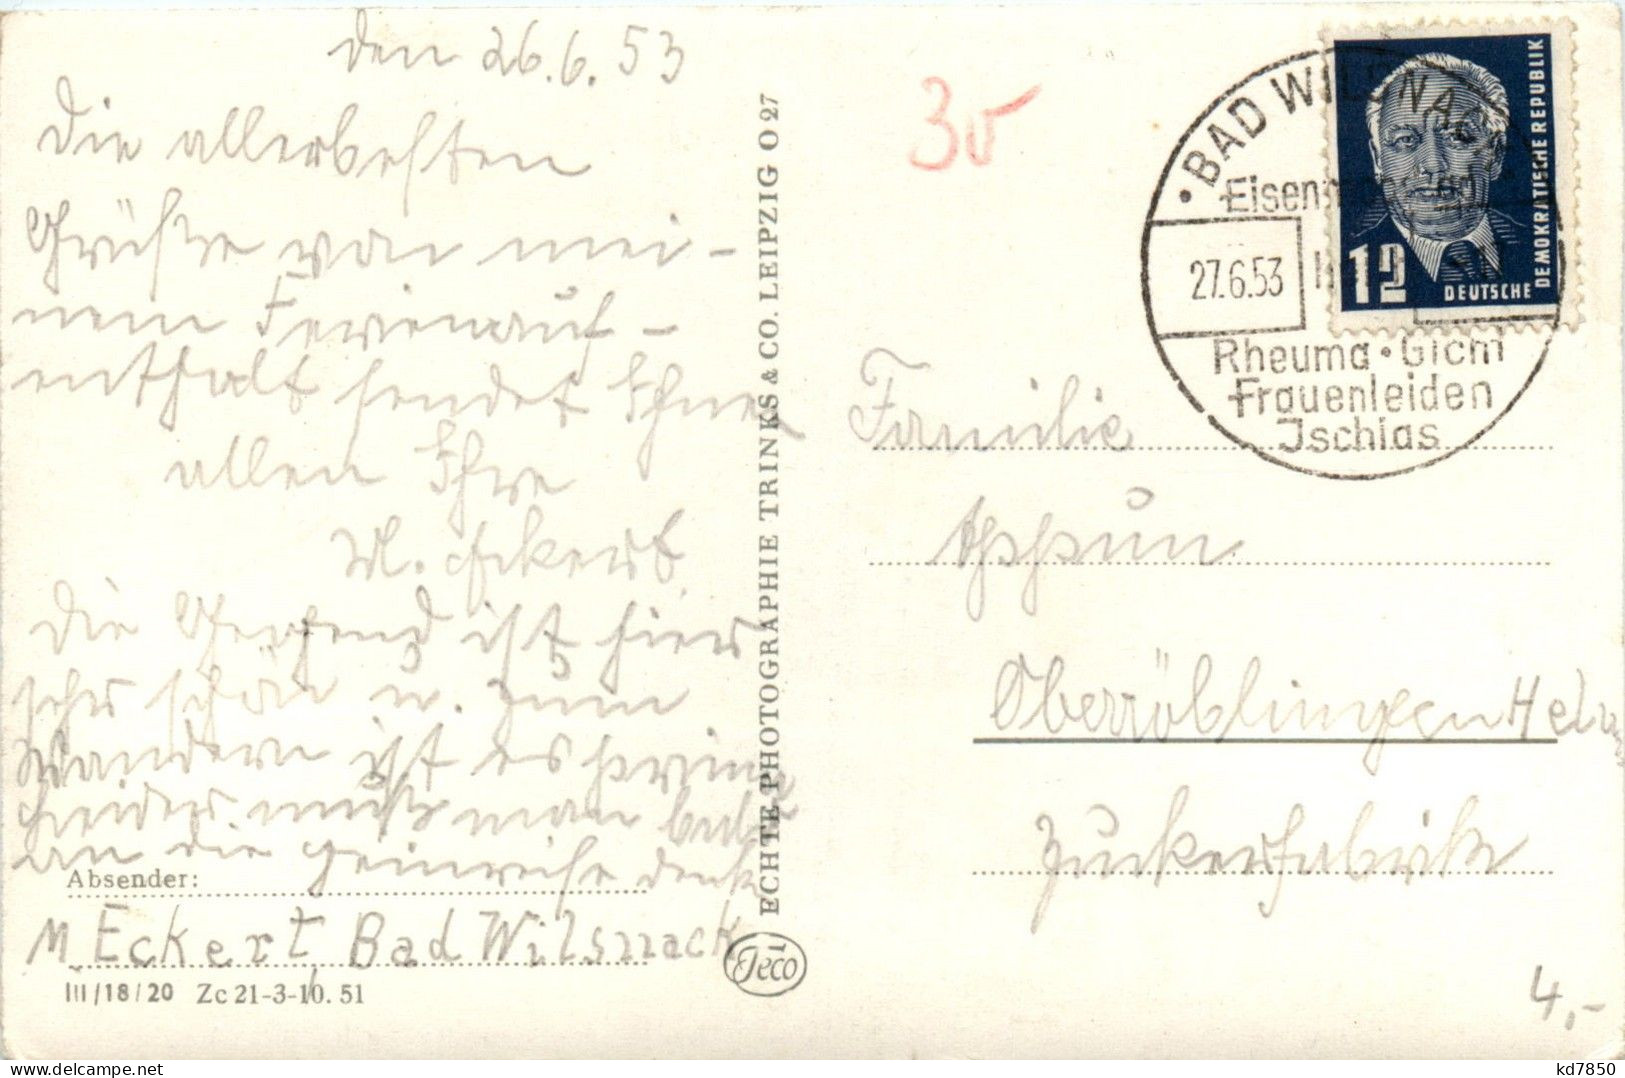 den 26.6.53
Die allerbesten
Grüße von mei-
nem Ferienauf-
enthalt sendet Ihnen
allen Ihre
M. Eckert
Die Gegend ist hier
sehr schön u. zum
Wandern ist es prima
leider muß man bald
an die Heimreise denken
Absender:
M Eckert, Bad Wilsnack
III/18/20 Zc 21-3-10. 51
ECHTE PHOTOGRAPHIE TRINKS & CO. LEIPZIG O 27
Jeco
30
• BAD WILSNACK
27.6.53
Rheuma • Gicht
Frauenleiden
Ischias
12
DEUTSCHE
DEMOKRATISCHE REPUBLIK
Familie
Appun
Oberröblingen Helme
Zuckerfabrik
4,-
kd7850